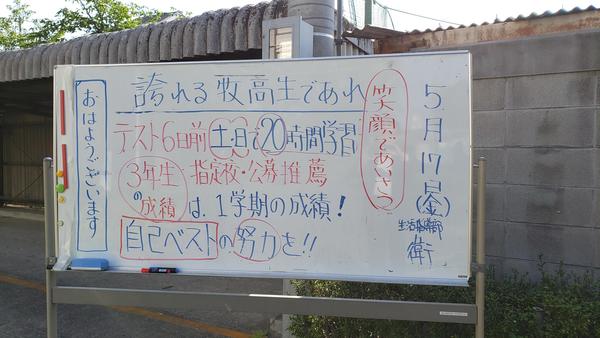 5月17日(金)
生活指導部
衛
笑顔であいさつ
誇れる牧高生であれ
テスト6日前 土・日で20時間学習
3年生 指定校・公募推薦
の成績は、1学期の成績!
自己ベストの努力を!!
おはようございます